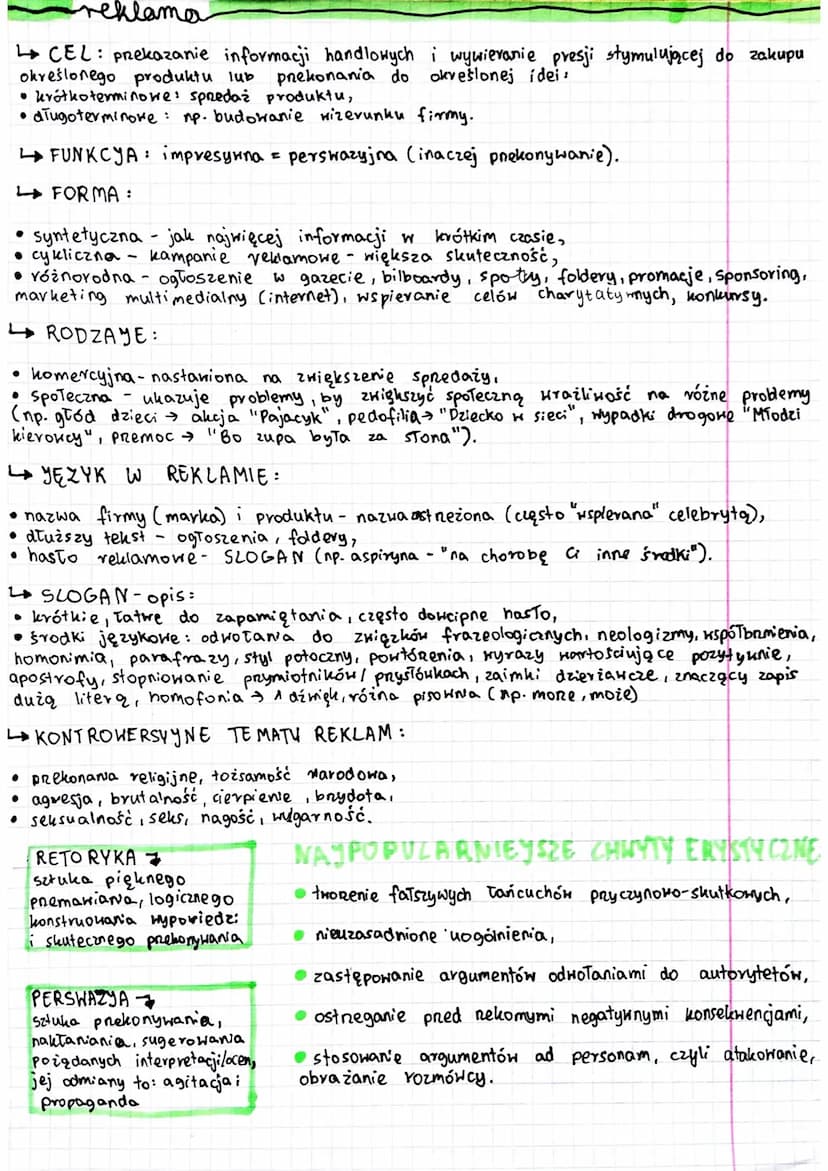 reklama
↳ CEL: przekazanie informacji handlowych i wywieranie presji stymulującej do zakupu
określonego produktu lub przekonania do określonej idei:
• krótkoterminowe: sprzedaż produktu,
• długoterminowe: np. budowanie wizerunku firmy.
↳ FUNKCJA: impresywna = perswazyjna (inaczej przekonywanie).
↳ FORMA:
• syntetyczna - jak najwięcej informacji w krótkim czasie,
• cykliczna - kampanie reklamowe - większa skuteczność,
• różnorodna - ogłoszenie w gazecie, bilboardy, spoty, foldery, promocje, sponsoring,
marketing multimedialny (internet), wspieranie celów charytatywnych, konkursy.
↳ RODZAJE:
• komercyjna - nastawiona na zwiększenie sprzedaży,
• społeczna - ukazuje problemy, by zwiększyć społeczną wrażliwość na różne problemy
(np. głód dzieci → akcja "Pajacyk", pedofilia → "Dziecko w sieci", wypadki drogowe "Młodzi
kierowcy", przemoc → "Bo zupa była za słona").
↳ JĘZYK W REKLAMIE:
• nazwa firmy (marka) i produktu - nazwa zastrzeżona (często "wspierana" celebrytą),
• dłuższy tekst - ogłoszenia, foldery,
• hasło reklamowe - SLOGAN (np. aspiryna - "na chorobę ci inne środki").
↳ SLOGAN - opis:
• krótkie, łatwe do zapamiętania, często dowcipne hasło,
• środki językowe: odwołania do związków frazeologicznych, neologizmy, współbrzmienia,
homonimia, parafrazy, styl potoczny, powtórzenia, wyrazy wartościujące pozytywnie,
apostrofy, stopniowanie przymiotników/ przysłówkach, zaimki dzierżawcze, znaczący zapis
dużą literą, homofonia → 1 dźwięk, różna pisownia (np. morze, może)
↳ KONTROWERSYJNE TEMATY REKLAM:
• przekonania religijne, tożsamość narodowa,
• agresja, brutalność, cierpienie, brzydota,
• seksualność, seks, nagość, wulgarność.
RETORYKA →
sztuka pięknego
przemawiania, logicznego
konstruowania wypowiedzi
i skutecznego przekonywania
PERSWAZJA →
sztuka przekonywania,
nakłaniania, sugerowania
pożądanych interpretacji/ocen,
jej odmiany to: agitacja i
propaganda
NAJPOPULARNIEJSZE CHWYTY ERYSTYCZNE
• tworzenie fałszywych łańcuchów przyczynowo-skutkowych,
• nieuzasadnione uogólnienia,
• zastępowanie argumentów odwołaniami do autorytetów,
• ostrzeganie przed rzekomymi negatywnymi konsekwencjami,
• stosowanie argumentów ad personam, czyli atakowanie,
obrażanie rozmówcy.